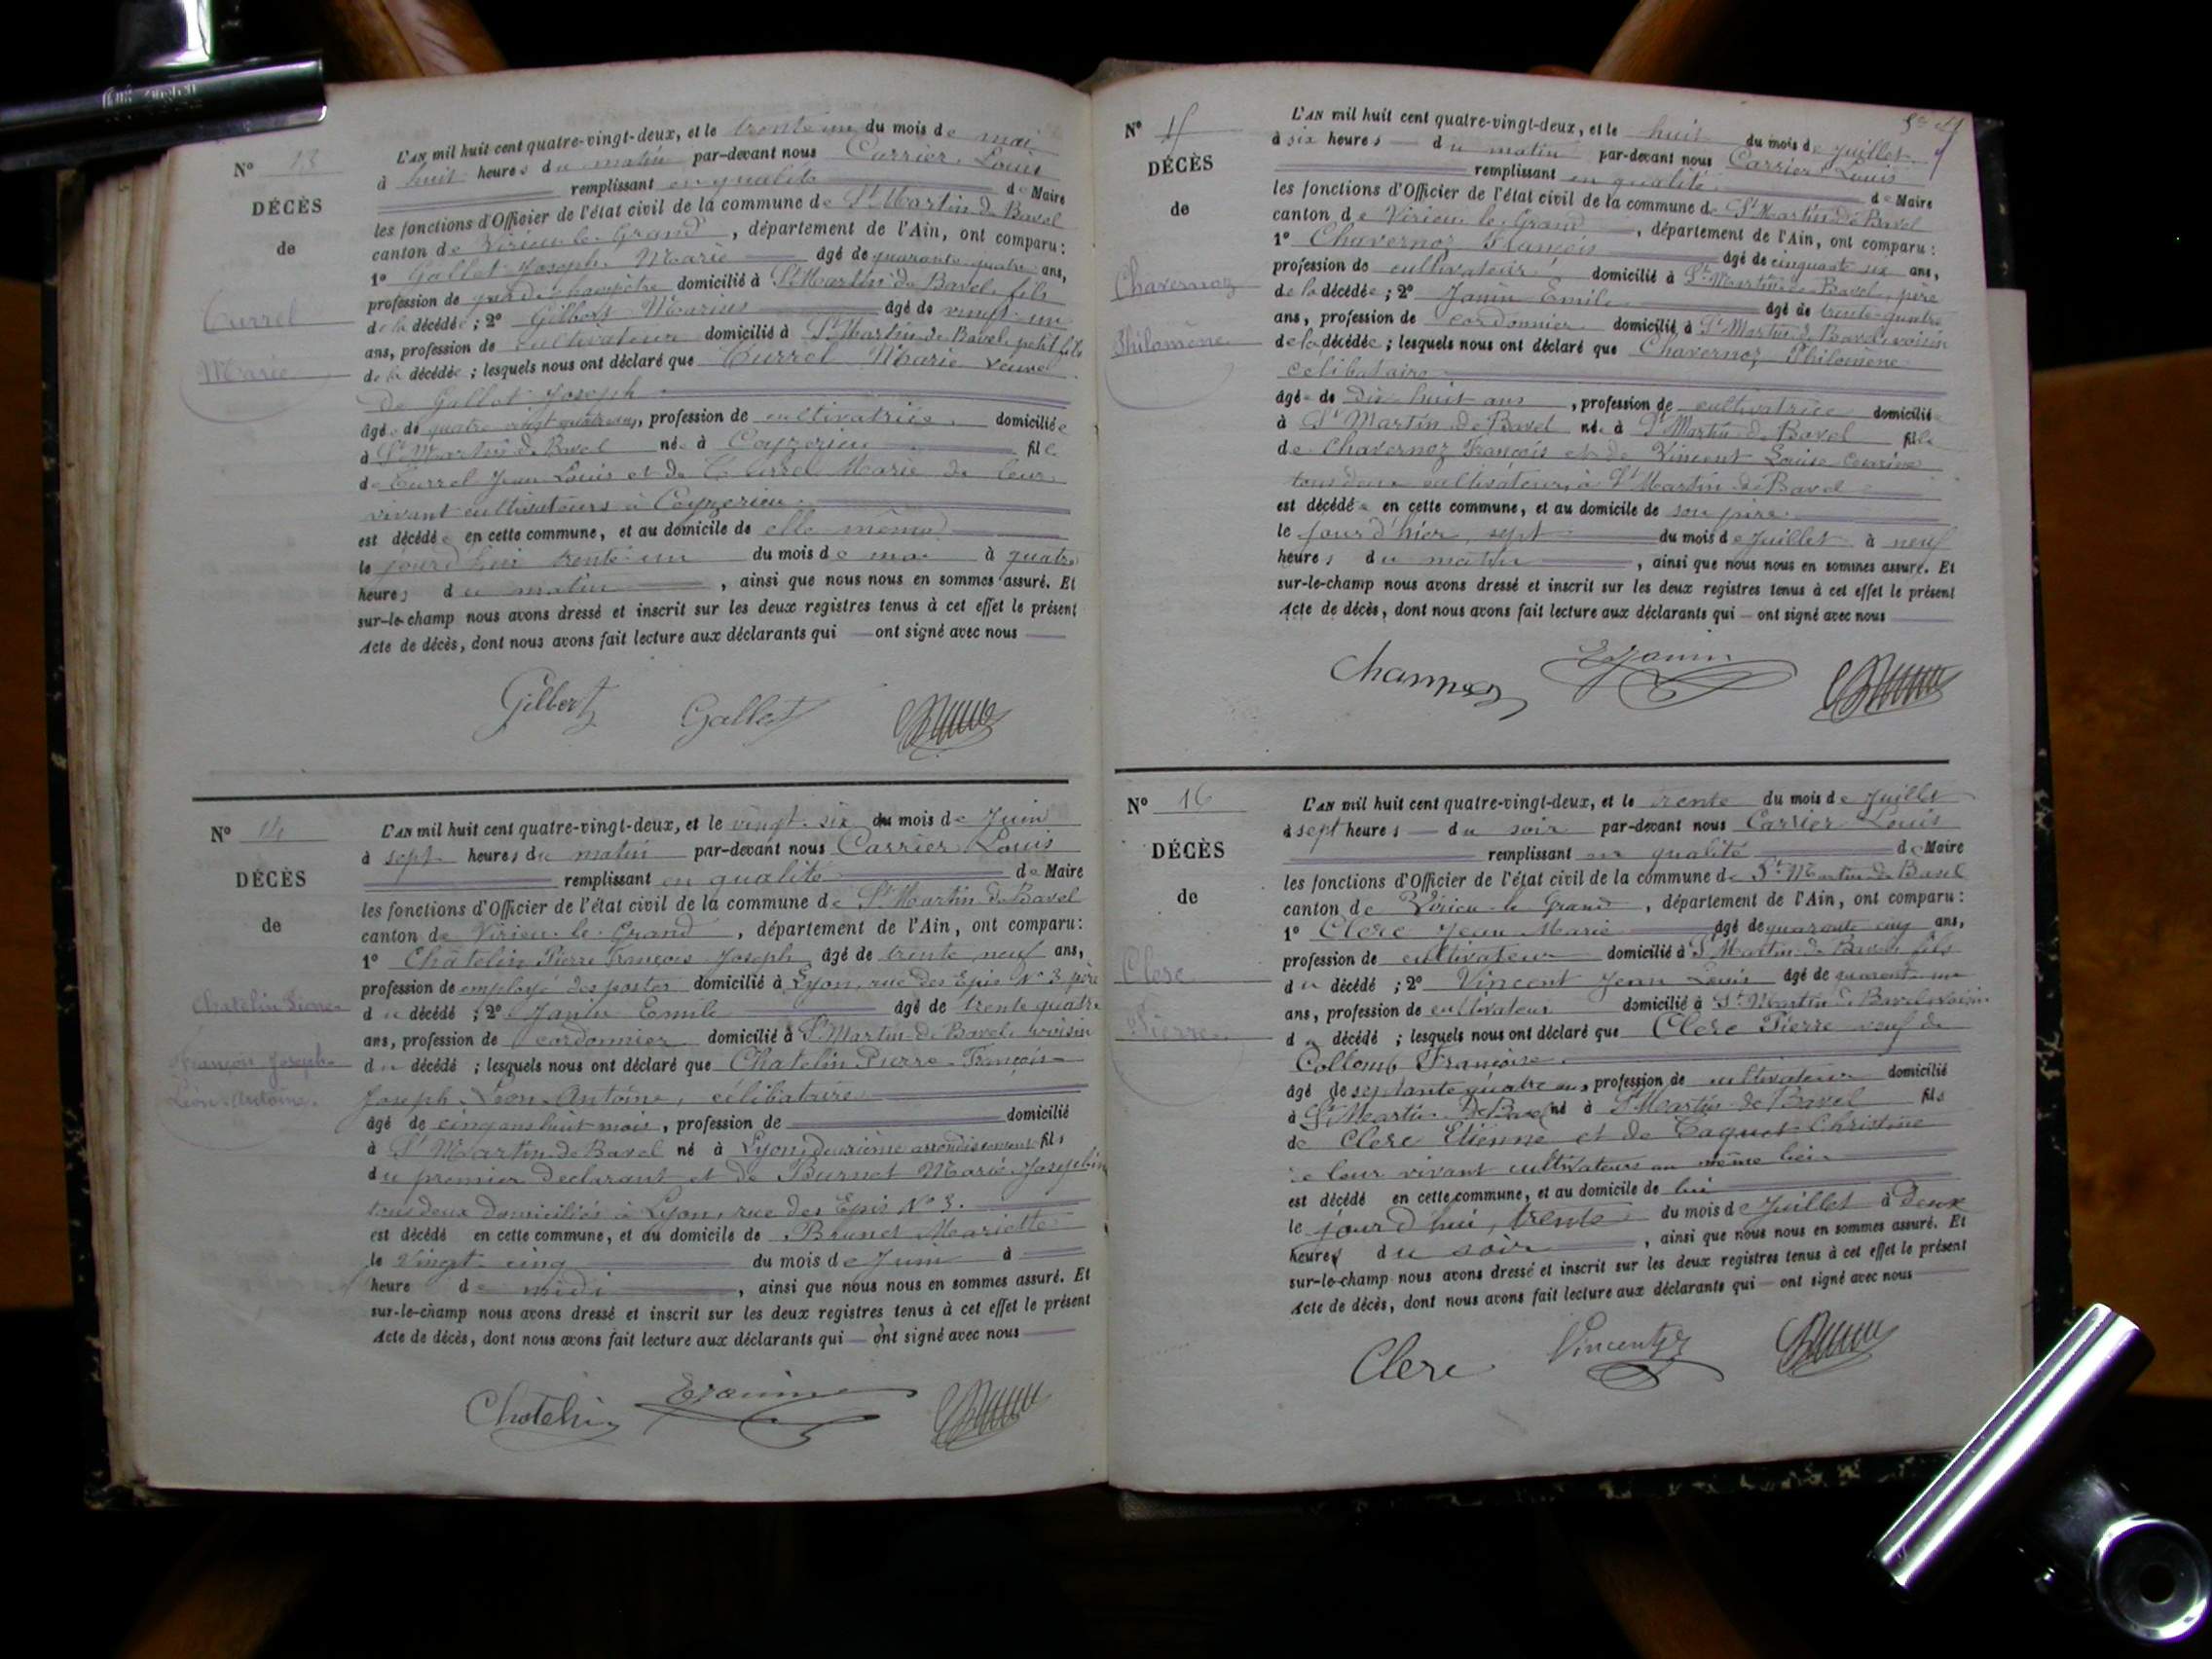 N° 13
DÉCÈS
de
Currel
Marie
L'AN mil huit cent quatre-vingt-deux, et le trente un du mois de mai
à huit heures du matin par-devant nous Carrier Louis
remplissant en qualité de Maire
les fonctions d'Officier de l'état civil de la commune de St Martin de Bavel
canton de Virieu le Grand, département de l'Ain, ont comparu :
1° Gallet Joseph Marie âgé de quarante quatre ans,
profession de garde champêtre domicilié à St Martin de Bavel, fils
de la décédée ; 2° Gilbert Marius âgé de vingt un
ans, profession de cultivateur domicilié à St Martin de Bavel, petit fils
de la décédée ; lesquels nous ont déclaré que Currel Marie veuve
de Gallet Joseph
âgée de quatre vingt quatre ans, profession de cultivatrice domiciliée
à St Martin de Bavel née à Ceyzerieu fille
de Currel Jean Louis et de Marie de leur
vivant cultivateurs à Ceyzerieu
est décédée en cette commune, et au domicile de elle même
le jourd'hui trente un du mois de mai à quatre
heures du matin, ainsi que nous nous en sommes assuré. Et
sur-le-champ nous avons dressé et inscrit sur les deux registres tenus à cet effet le présent
Acte de décès, dont nous avons fait lecture aux déclarants qui ont signé avec nous
Gilbert Gallet
N° 14
DÉCÈS
de
Chatelin Pierre
François Joseph
Léon Antoine.
L'AN mil huit cent quatre-vingt-deux, et le vingt six du mois de Juin
à sept heures du matin par-devant nous Carrier Louis
remplissant en qualité de Maire
les fonctions d'Officier de l'état civil de la commune de St Martin de Bavel
canton de Virieu le Grand, département de l'Ain, ont comparu :
1° Châtelin Pierre François Joseph âgé de trente neuf ans,
profession de employé des postes domicilié à Lyon, rue des Epis N° 3 père
du décédé ; 2° Janin Emile âgé de trente quatre
ans, profession de cordonnier domicilié à St Martin de Bavel, voisin
du décédé ; lesquels nous ont déclaré que Chatelin Pierre François
Joseph Léon Antoine, célibataire
âgé de cinq ans huit mois, profession de domicilié
à St Martin de Bavel né à Lyon, deuxième arrondissement fils
du premier déclarant et de Burnet Marie Josephine
tous deux domiciliés à Lyon, rue des Epis N° 3.
est décédé en cette commune, et au domicile de Brunet Mariette
le vingt cinq du mois de Juin à
heure de midi, ainsi que nous nous en sommes assuré. Et
sur-le-champ nous avons dressé et inscrit sur les deux registres tenus à cet effet le présent
Acte de décès, dont nous avons fait lecture aux déclarants qui ont signé avec nous
Chatelin E Janin
N° 15
DÉCÈS
de
Chavernoz
Philomène
L'AN mil huit cent quatre-vingt-deux, et le huit du mois de Juillet
à six heures du matin par-devant nous Carrier Louis
remplissant en qualité de Maire
les fonctions d'Officier de l'état civil de la commune de St Martin de Bavel
canton de Virieu le Grand, département de l'Ain, ont comparu :
1° Chavernoz François âgé de cinquante six ans,
profession de cultivateur domicilié à St Martin de Bavel, père
de la décédée ; 2° Janin Emile âgé de trente-quatre
ans, profession de cordonnier domicilié à St Martin de Bavel, voisin
de la décédée ; lesquels nous ont déclaré que Chavernoz Philomène
célibataire
âgée de dix huit ans, profession de cultivatrice domiciliée
à St Martin de Bavel née à St Martin de Bavel fille
de Chavernoz François et de Vincent Louise Césarine
tous deux cultivateurs à St Martin de Bavel
est décédée en cette commune, et au domicile de son père
le jour d'hier, sept du mois de Juillet à neuf
heures du matin, ainsi que nous nous en sommes assuré. Et
sur-le-champ nous avons dressé et inscrit sur les deux registres tenus à cet effet le présent
Acte de décès, dont nous avons fait lecture aux déclarants qui ont signé avec nous
E Janin
N° 16
DÉCÈS
de
Clerc
Pierre
L'AN mil huit cent quatre-vingt-deux, et le trente du mois de Juillet
à sept heures du soir par-devant nous Carrier Louis
remplissant en qualité de Maire
les fonctions d'Officier de l'état civil de la commune de St Martin de Bavel
canton de Virieu le Grand, département de l'Ain, ont comparu :
1° Clerc Jean Marie âgé de quarante cinq ans,
profession de cultivateur domicilié à St Martin de Bavel fils
du décédé ; 2° Vincent Jean Louis âgé de quarante un
ans, profession de cultivateur domicilié à St Martin de Bavel voisin
du décédé ; lesquels nous ont déclaré que Clerc Pierre veuf de
Collomb Françoise
âgé de septante quatre ans, profession de cultivateur domicilié
à St Martin de Bavel né à St Martin de Bavel fils
de Clerc Etienne et de Taquet Christine
de leur vivant cultivateurs au même lieu
est décédé en cette commune, et au domicile de lui
le jour d'hui, trente du mois de Juillet à deux
heures du soir, ainsi que nous nous en sommes assuré. Et
sur-le-champ nous avons dressé et inscrit sur les deux registres tenus à cet effet le présent
Acte de décès, dont nous avons fait lecture aux déclarants qui ont signé avec nous
Clerc Vincent